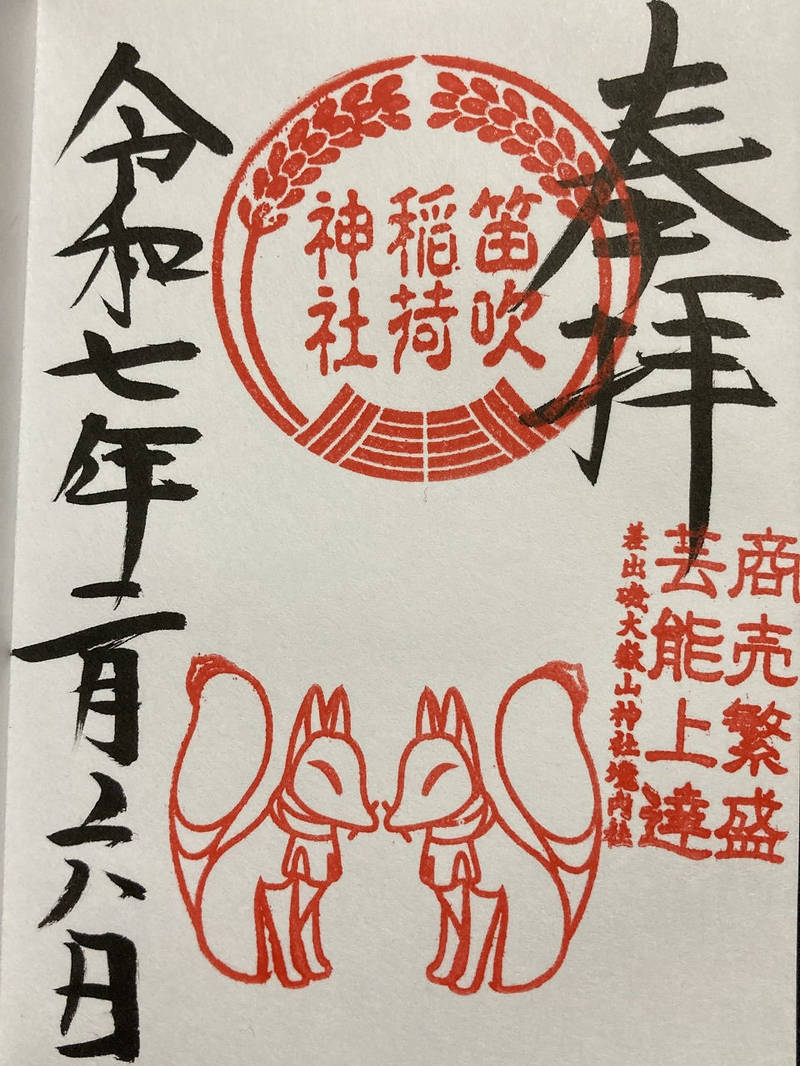 奉拝
笛吹
稲荷
神社
商売繁盛
芸能上達
差出磯大嶽山神社境内社
令和七年二月六日